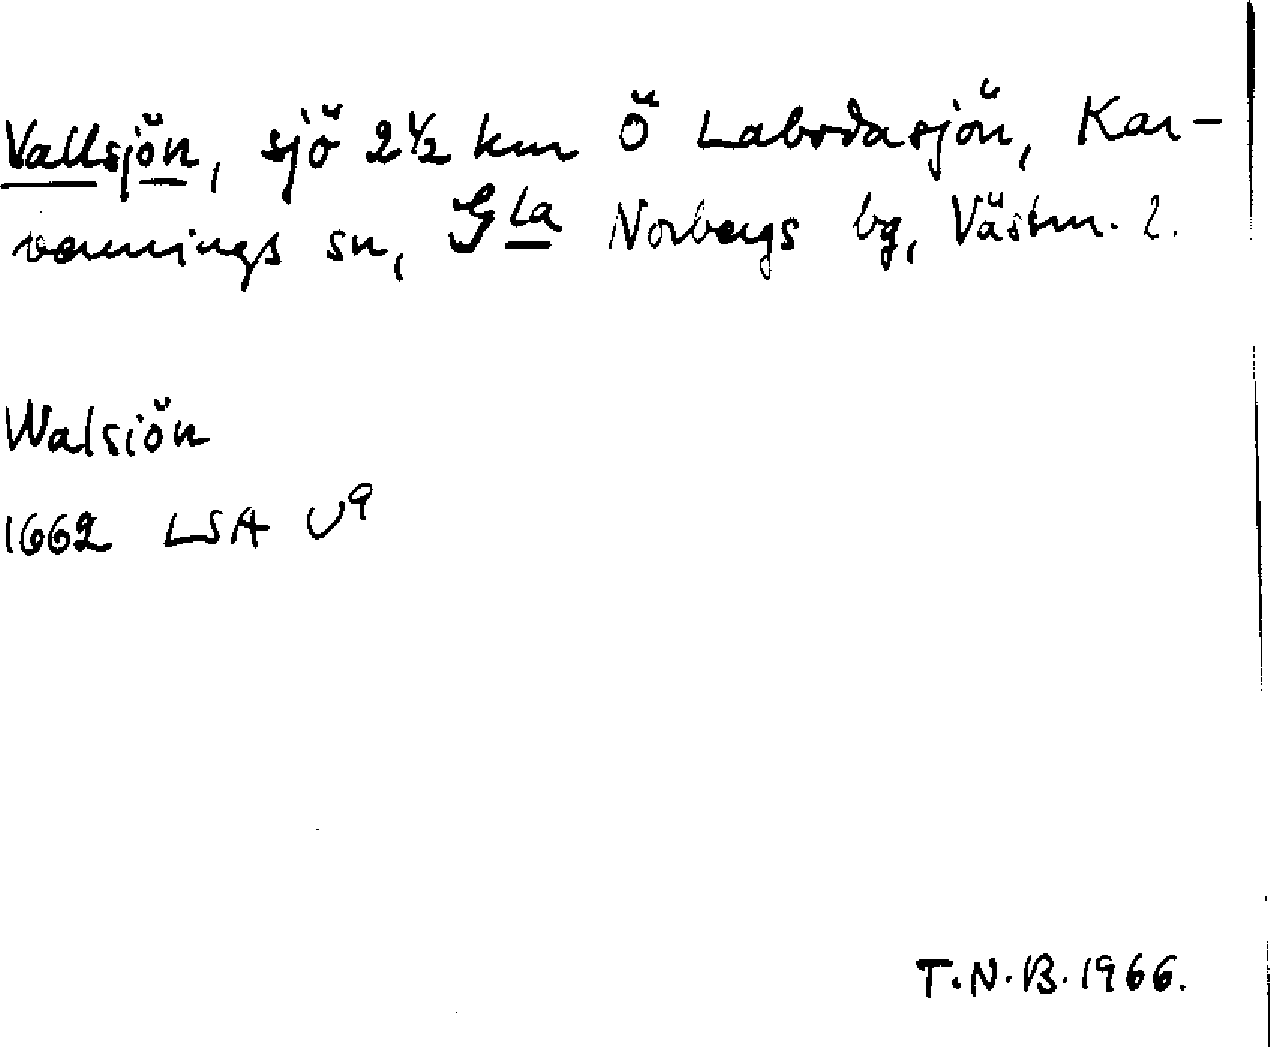 Vallsjön, sjö 2½ km Ö Labodasjön, Kar-
vennings sn, Gla Norbergs bg, Västm. l.
Walsiön
1662 LSA U9
T.N.B. 1966.